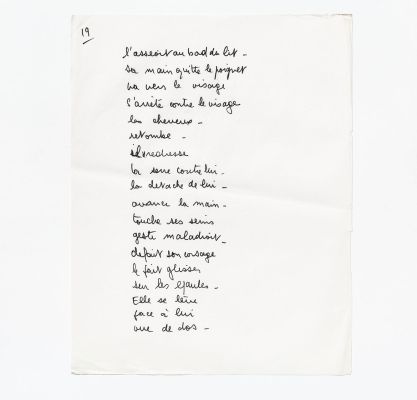 19
l'asseoit au bord du lit –
sa main quitte le poignet
va vers le visage
s'arrête contre le visage
les cheveux –
retombe –
il redresse
la serre contre lui –
la détache de lui –
avance la main –
touche ses seins
geste maladroit –
défait son corsage
le fait glisser
sur les épaules –
Elle se lève
face à lui
vue de dos –